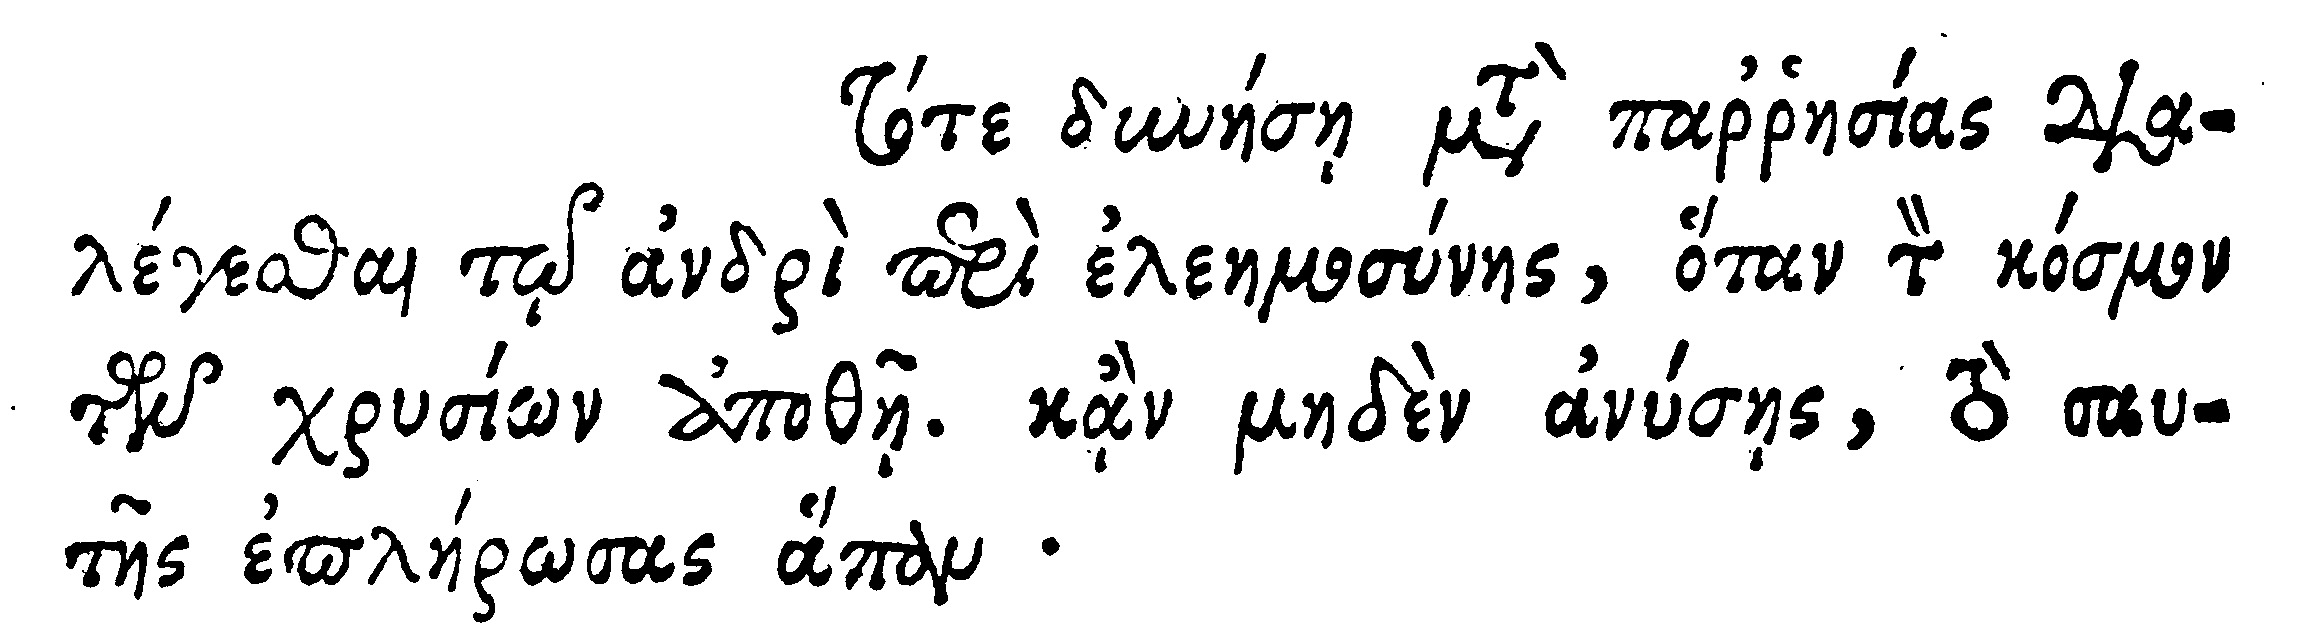 τότε δυνήσῃ μετὰ παῤῥησίας δια-
λέγεσθαι τῷ ἀνδρὶ περὶ ἐλεημοσύνης, ὅταν τὸν κόσμον
τῶν χρυσίων ἀποθῇ. κἂν μηδὲν ἀνύσῃς, τὸ σαυ-
τῆς ἐπλήρωσας ἅπαν.